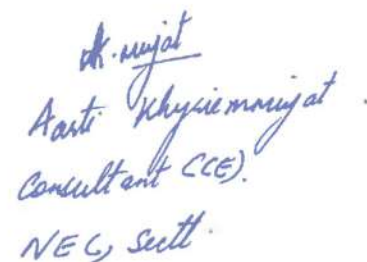 A. mujat
Aarti Khyriemmujat.
Consultant (CE).
NEC, Sectt.